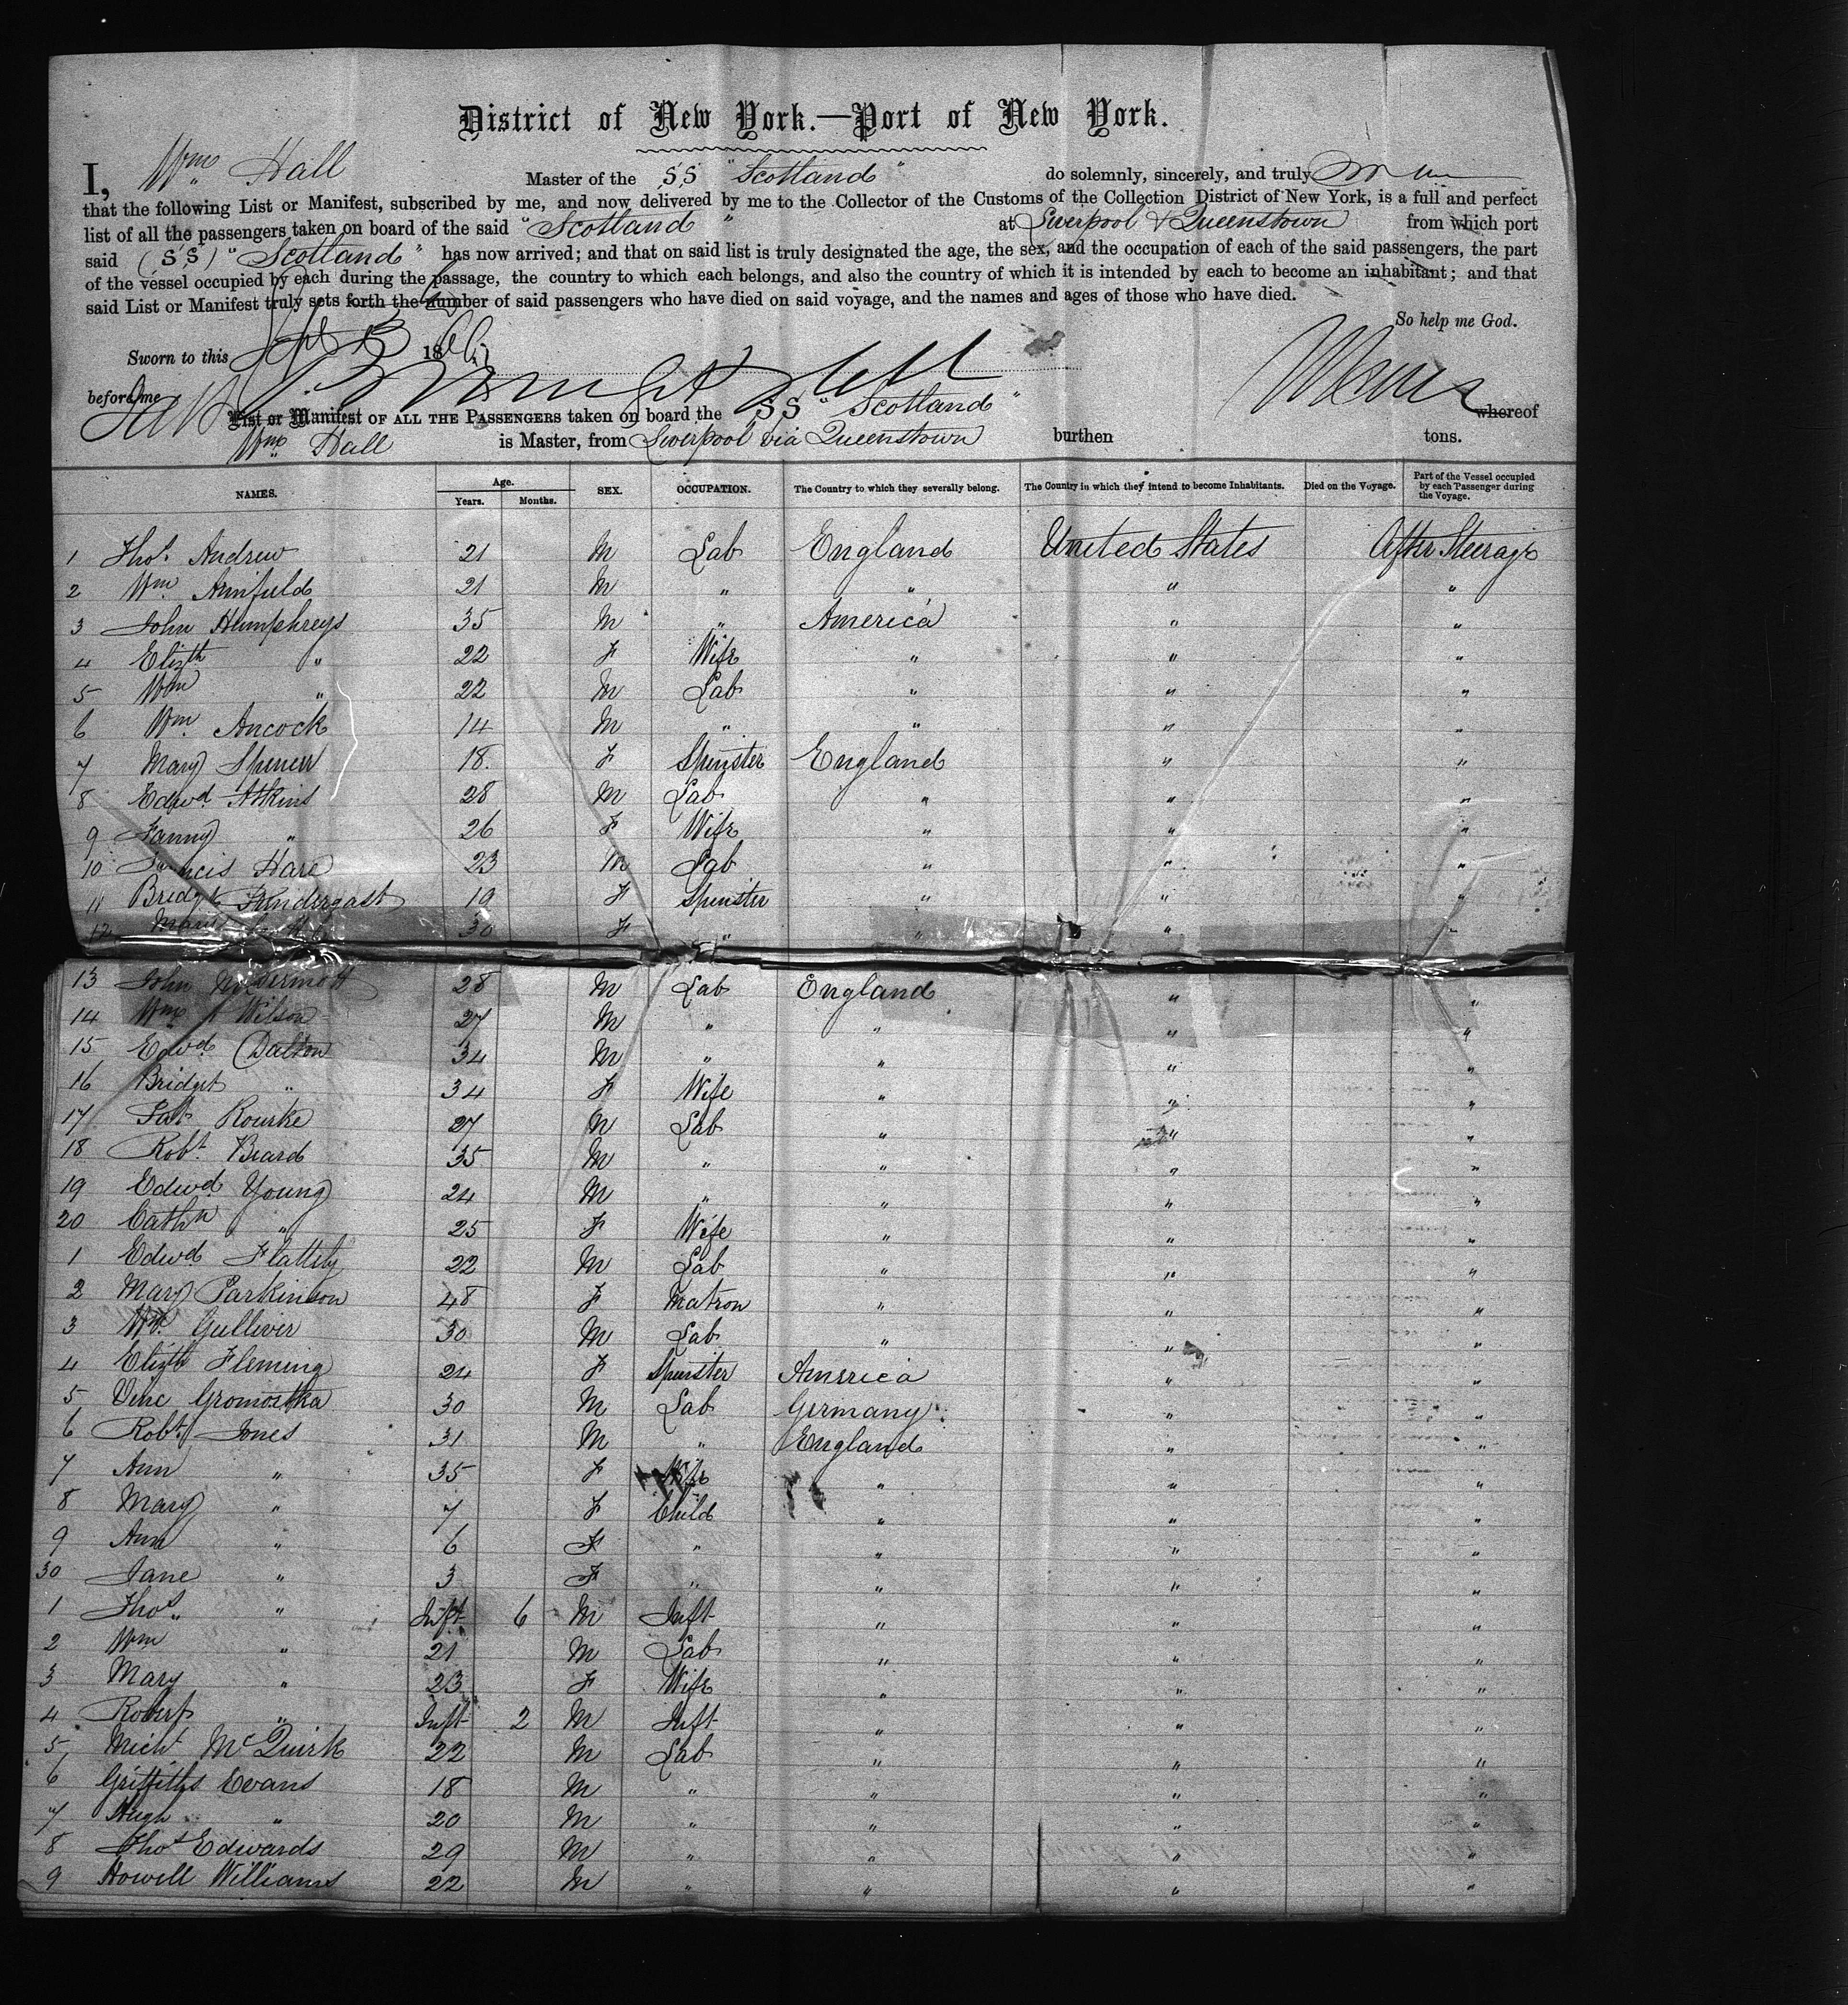 District of New York.—Port of New York.
I, Wm Hall Master of the SS "Scotland" do solemnly, sincerely, and truly
that the following List or Manifest, subscribed by me, and now delivered by me to the Collector of the Customs of the Collection District of New York, is a full and perfect
list of all the passengers taken on board of the said "Scotland" at Liverpool & Queenstown from which port
said (SS) "Scotland" has now arrived; and that on said list is truly designated the age, the sex, and the occupation of each of the said passengers, the part
of the vessel occupied by each during the passage, the country to which each belongs, and also the country of which it is intended by each to become an inhabitant; and that
said List or Manifest truly sets forth the number of said passengers who have died on said voyage, and the names and ages of those who have died.
So help me God.
Sworn to this Sept 1866
before me
List or Manifest OF ALL THE PASSENGERS taken on board the SS "Scotland" whereof
Wm Hall is Master, from Liverpool via Queenstown burthen tons.
NAMES. Age. Years. Months. SEX. OCCUPATION. The Country to which they severally belong. The Country in which they intend to become Inhabitants. Died on the Voyage. Part of the Vessel occupied by each Passenger during the Voyage.
1 Thos. Andrew 21 M Lab England United States After Steerage
2 Wm. Armfield 21 M " " " "
3 John Humphreys 35 M " America " "
4 Elizth " 22 F Wife " " "
5 Wm " 22 M Lab " " "
6 Wm. Ancock 14 M " " " "
7 Mary Spencer 18. F Spinster England " "
8 Edwd. Atkins 28 M Lab " " "
9 Fanny " 26 F Wife " " "
10 Francis Hare 23 M Lab " " "
11 Bridgt Pendergast 19 F Spinster " " "
12 Mary 30 F " " " "
13 John McDermott 28 M Lab England " "
14 Wm Wilson 27 M " " " "
15 Edwd Dalton 34 M " " " "
16 Bridget " 34 F Wife " " "
17 Pat Rourke 27 M Lab " " "
18 Robt. Beard 35 M " " " "
19 Edwd Young 24 M " " " "
20 Cathn " 25 F Wife " " "
1 Edwd Flattely 22 M Lab " " "
2 Mary Parkinson 48 F Matron " " "
3 Wm. Gulliver 30 M Lab " " "
4 Elizth Fleming 24 F Spinster America " "
5 Vinc Gromostka 30 M Lab Germany " "
6 Robt. Jones 31 M " England " "
7 Ann " 35 F Wife " " "
8 Mary " 7 F Child " " "
9 Ann " 6 F " " " "
30 Jane " 3 F " " " "
1 Thos " Inft 6 M Inft " " "
2 Wm " 21 M Lab " " "
3 Mary " 23 F Wife " " "
4 Robert " Inft 2 M Inft " " "
5 Michl McQuirk 22 M Lab " " "
6 Griffiths Evans 18 M " " " "
7 Hugh " 20 M " " " "
8 Thos Edwards 29 M " " " "
9 Howell Williams 22 M " " " "